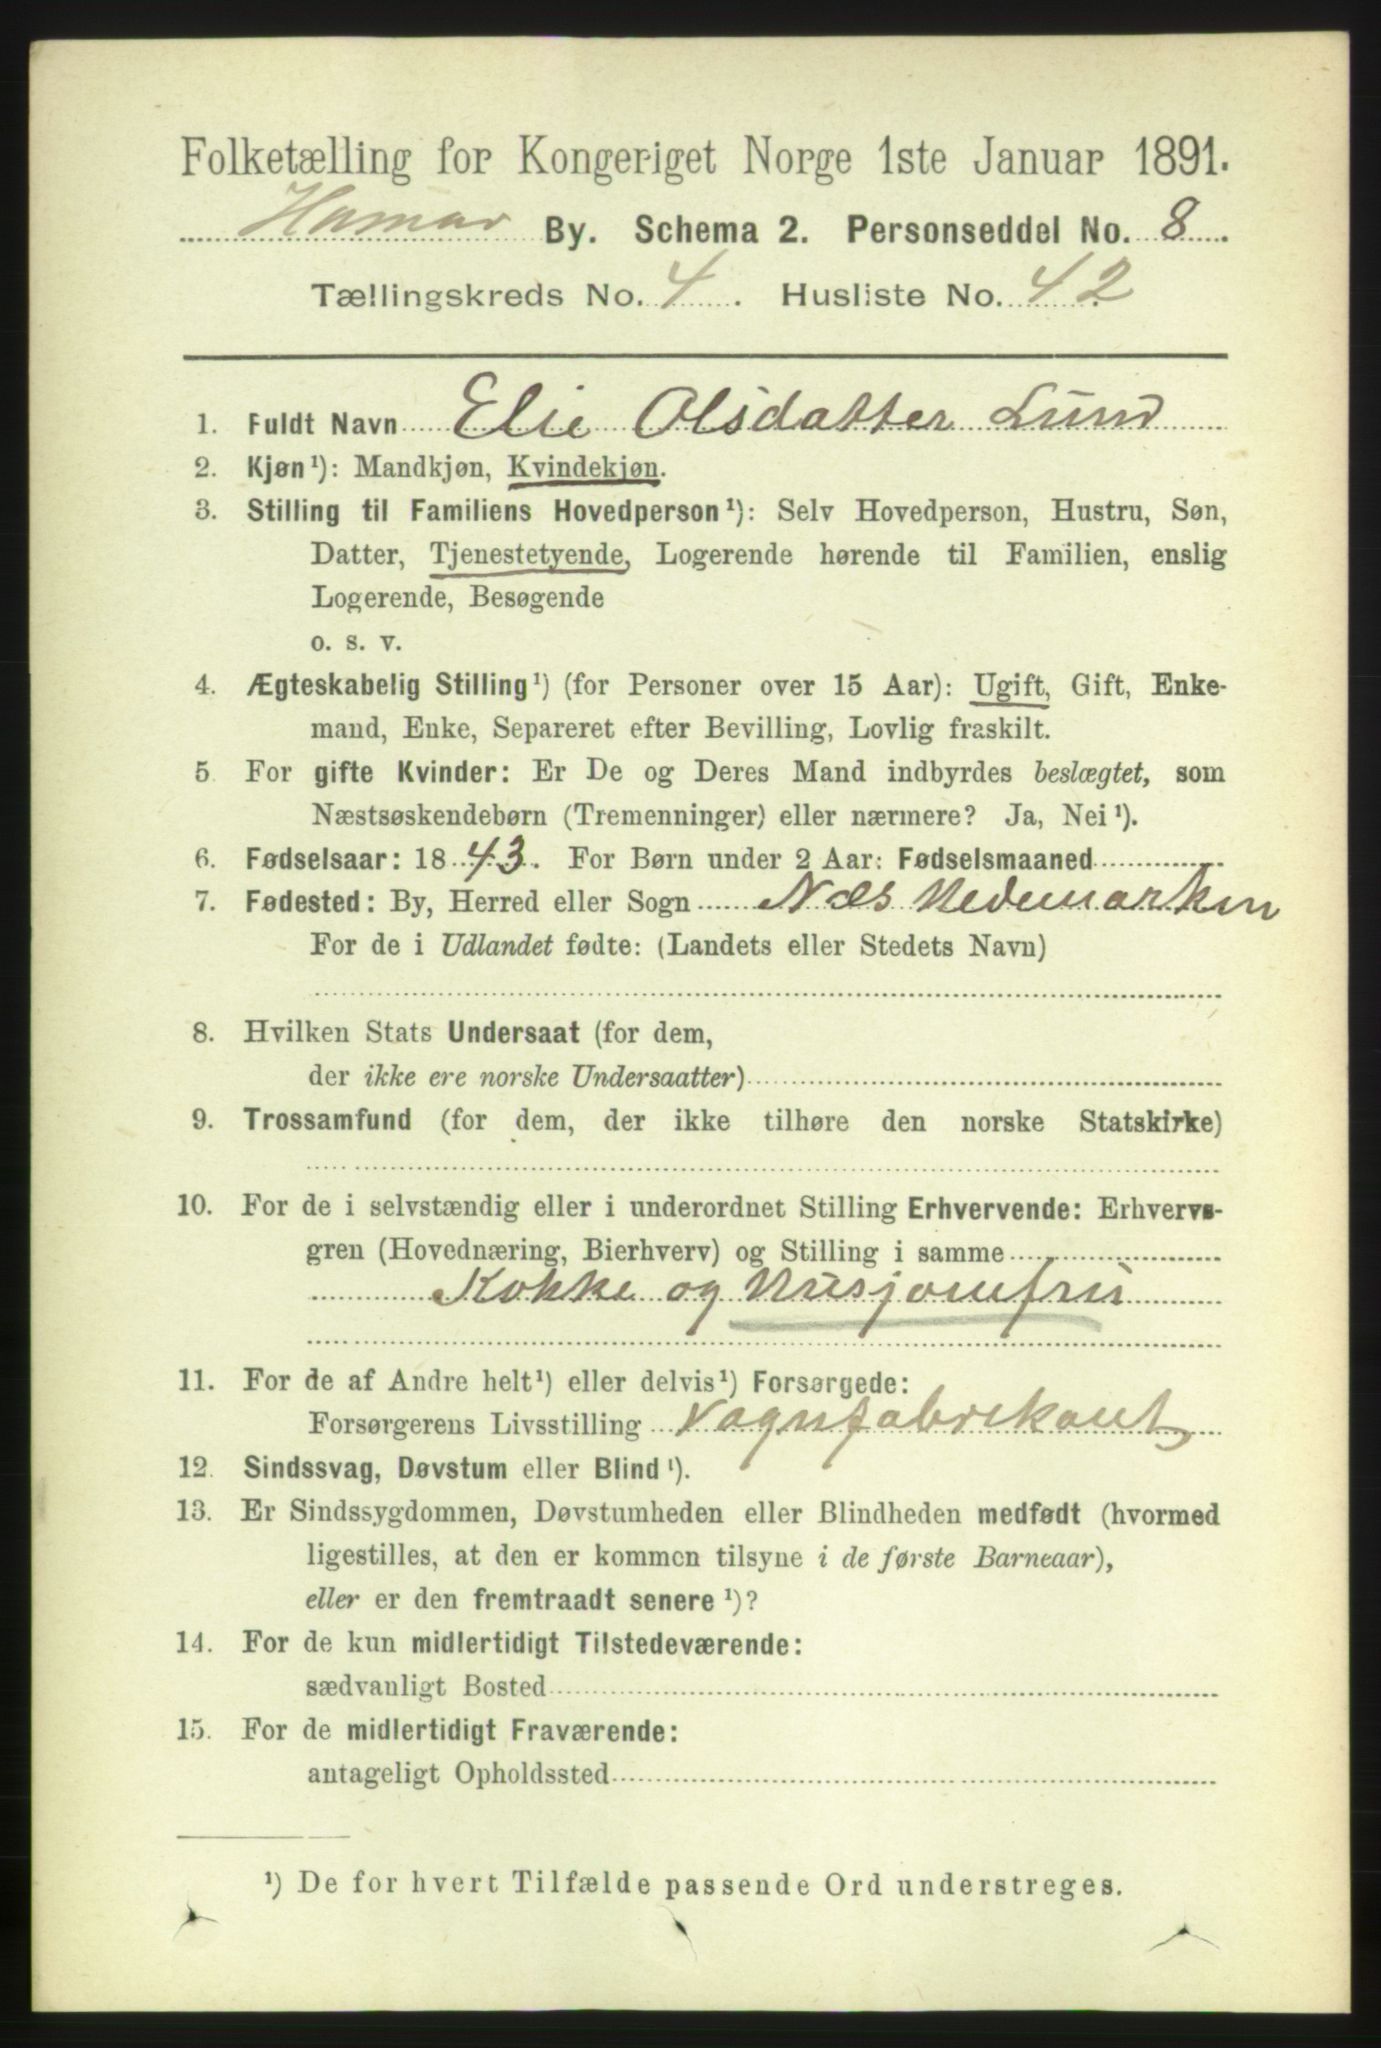 Folketælling for Kongeriget Norge 1ste Januar 1891.
Hamar By. Schema 2. Personseddel No. 8
Tællingskreds No. 4. Husliste No. 42
1. Fuldt Navn Elie Olsdatter Lund
2. Kjøn¹): Mandkjøn, Kvindekjøn.
3. Stilling til Familiens Hovedperson¹): Selv Hovedperson, Hustru, Søn,
Datter, Tjenestetyende, Logerende hørende til Familien, enslig
Logerende, Besøgende
o. s. v.
4. Ægteskabelig Stilling¹) (for Personer over 15 Aar): Ugift, Gift, Enke-
mand, Enke, Separeret efter Bevilling, Lovlig fraskilt.
5 For gifte Kvinder: Er De og Deres Mand indbyrdes beslægtet, som
Næstsøskendebørn (Tremenninger) eller nærmere? Ja, Nei¹).
6. Fødselsaar: 1843. For Børn under 2 Aar: Fødselsmaaned
7. Fødested: By, Herred eller Sogn Næs Hedemarken
For de i Udlandet fødte: (Landets eller Stedets Navn)
8. Hvilken Stats Undersaat (for dem,
der ikke ere norske Undersaatter)
9. Trossamfund (for dem, der ikke tilhøre den norske Statskirke)
10. For de i selvstændig eller i underordnet Stilling Erhvervende: Erhvervs-
gren (Hovednæring, Bierhverv) og Stilling i samme
Kokke og Husjomfru
11. For de af Andre helt¹) eller delvis¹) Forsørgede:
Forsørgerens Livsstilling Vognfabrikant
12. Sindssvag, Døvstum eller Blind¹).
13. Er Sindssygdommen, Døvstumheden eller Blindheden medfødt (hvormed
ligestilles, at den er kommen tilsyne i de første Barneaar),
eller er den fremtraadt senere¹)?
14. For de kun midlertidigt Tilstedeværende:
sædvanligt Bosted
15. For de midlertidigt Fraværende:
antageligt Opholdssted
¹) De for hvert Tilfælde passende Ord understreges.